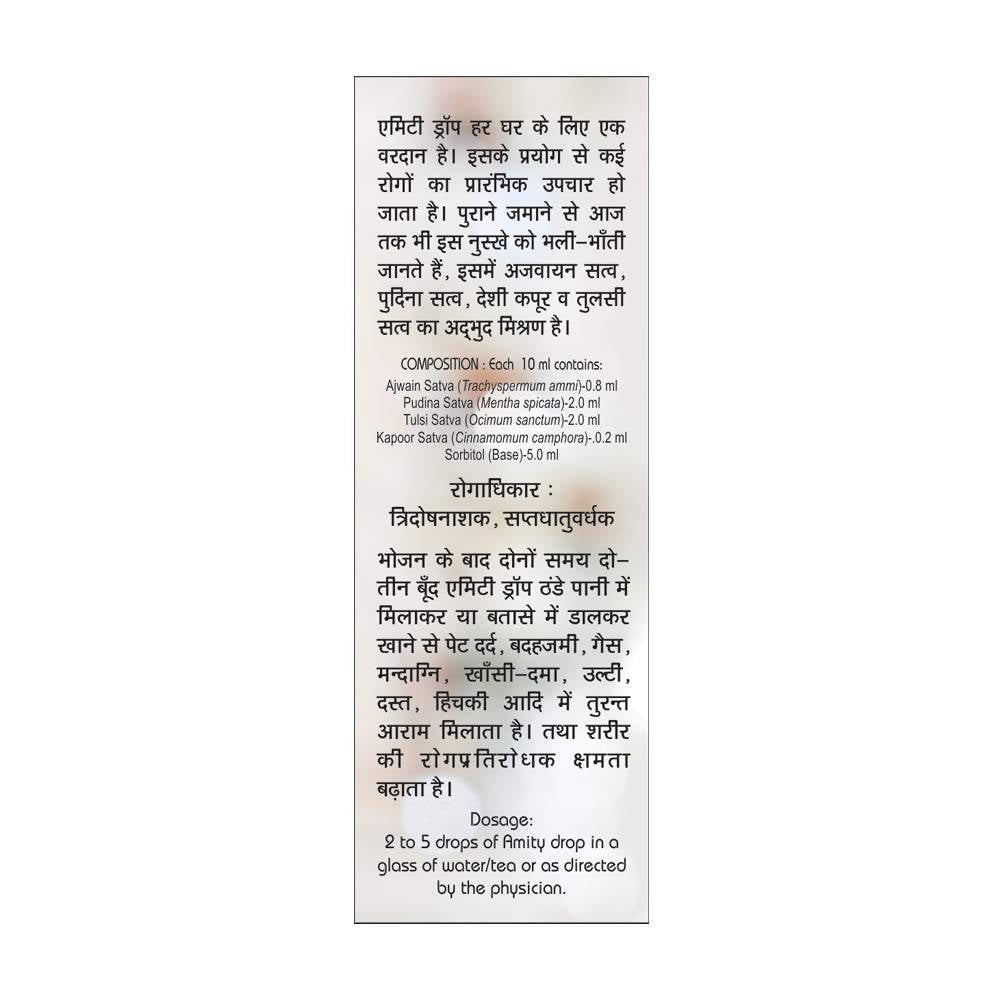 एमिटी ड्रॉप हर घर के लिए एक
वरदान है। इसके प्रयोग से कई
रोगों का प्रारंभिक उपचार हो
जाता है। पुराने जमाने से आज
तक भी इस नुस्खे को भली-भाँती
जानते हैं, इसमें अजवायन सत्व,
पुदिना सत्व, देशी कपूर व तुलसी
सत्व का अद्भुद मिश्रण है।
COMPOSITION : Each 10 ml contains:
Ajwain Satva (Trachyspermum ammi)-0.8 ml
Pudina Satva (Mentha spicata)-2.0 ml
Tulsi Satva (Ocimum sanctum)-2.0 ml
Kapoor Satva (Cinnamomum camphora)-.0.2 ml
Sorbitol (Base)-5.0 ml
रोगाधिकार :
त्रिदोषनाशक, सप्तधातुवर्धक
भोजन के बाद दोनों समय दो-
तीन बूँद एमिटी ड्रॉप ठंडे पानी में
मिलाकर या बतासे में डालकर
खाने से पेट दर्द, बदहजमी, गैस,
मन्दाग्नि, खाँसी-दमा, उल्टी,
दस्त, हिचकी आदि में तुरन्त
आराम मिलाता है। तथा शरीर
की रोगप्रतिरोधक क्षमता
बढ़ाता है।
Dosage:
2 to 5 drops of Amity drop in a
glass of water/tea or as directed
by the physician.